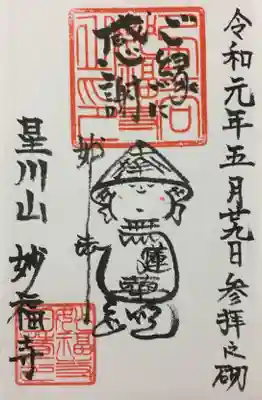 令和元年五月廿九日参拝之砌
ご縁に
感謝
無
妙
法
蓮
華
星川山 妙福寺